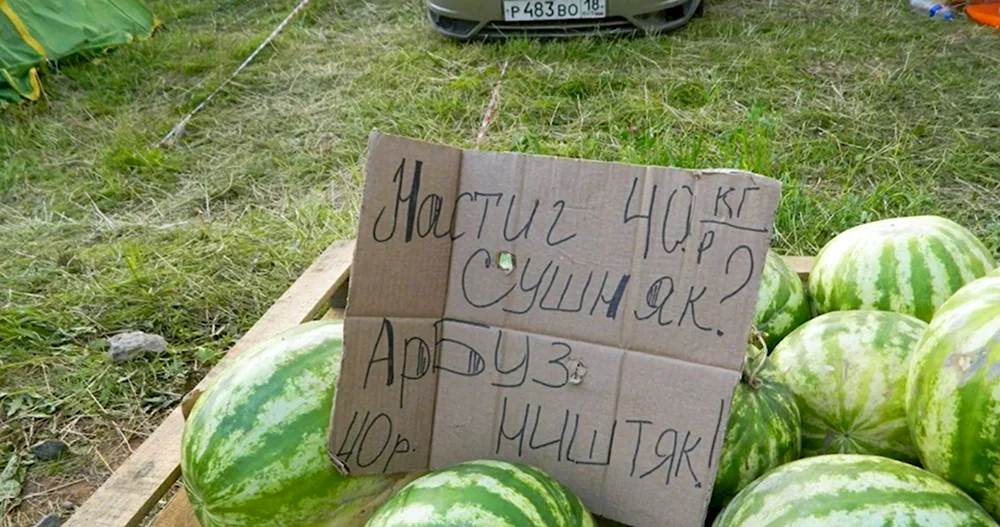 Р 483 ВО 18
Настиг 40 кг/р
Сушняк?
Арбуз
40р. ништяк!